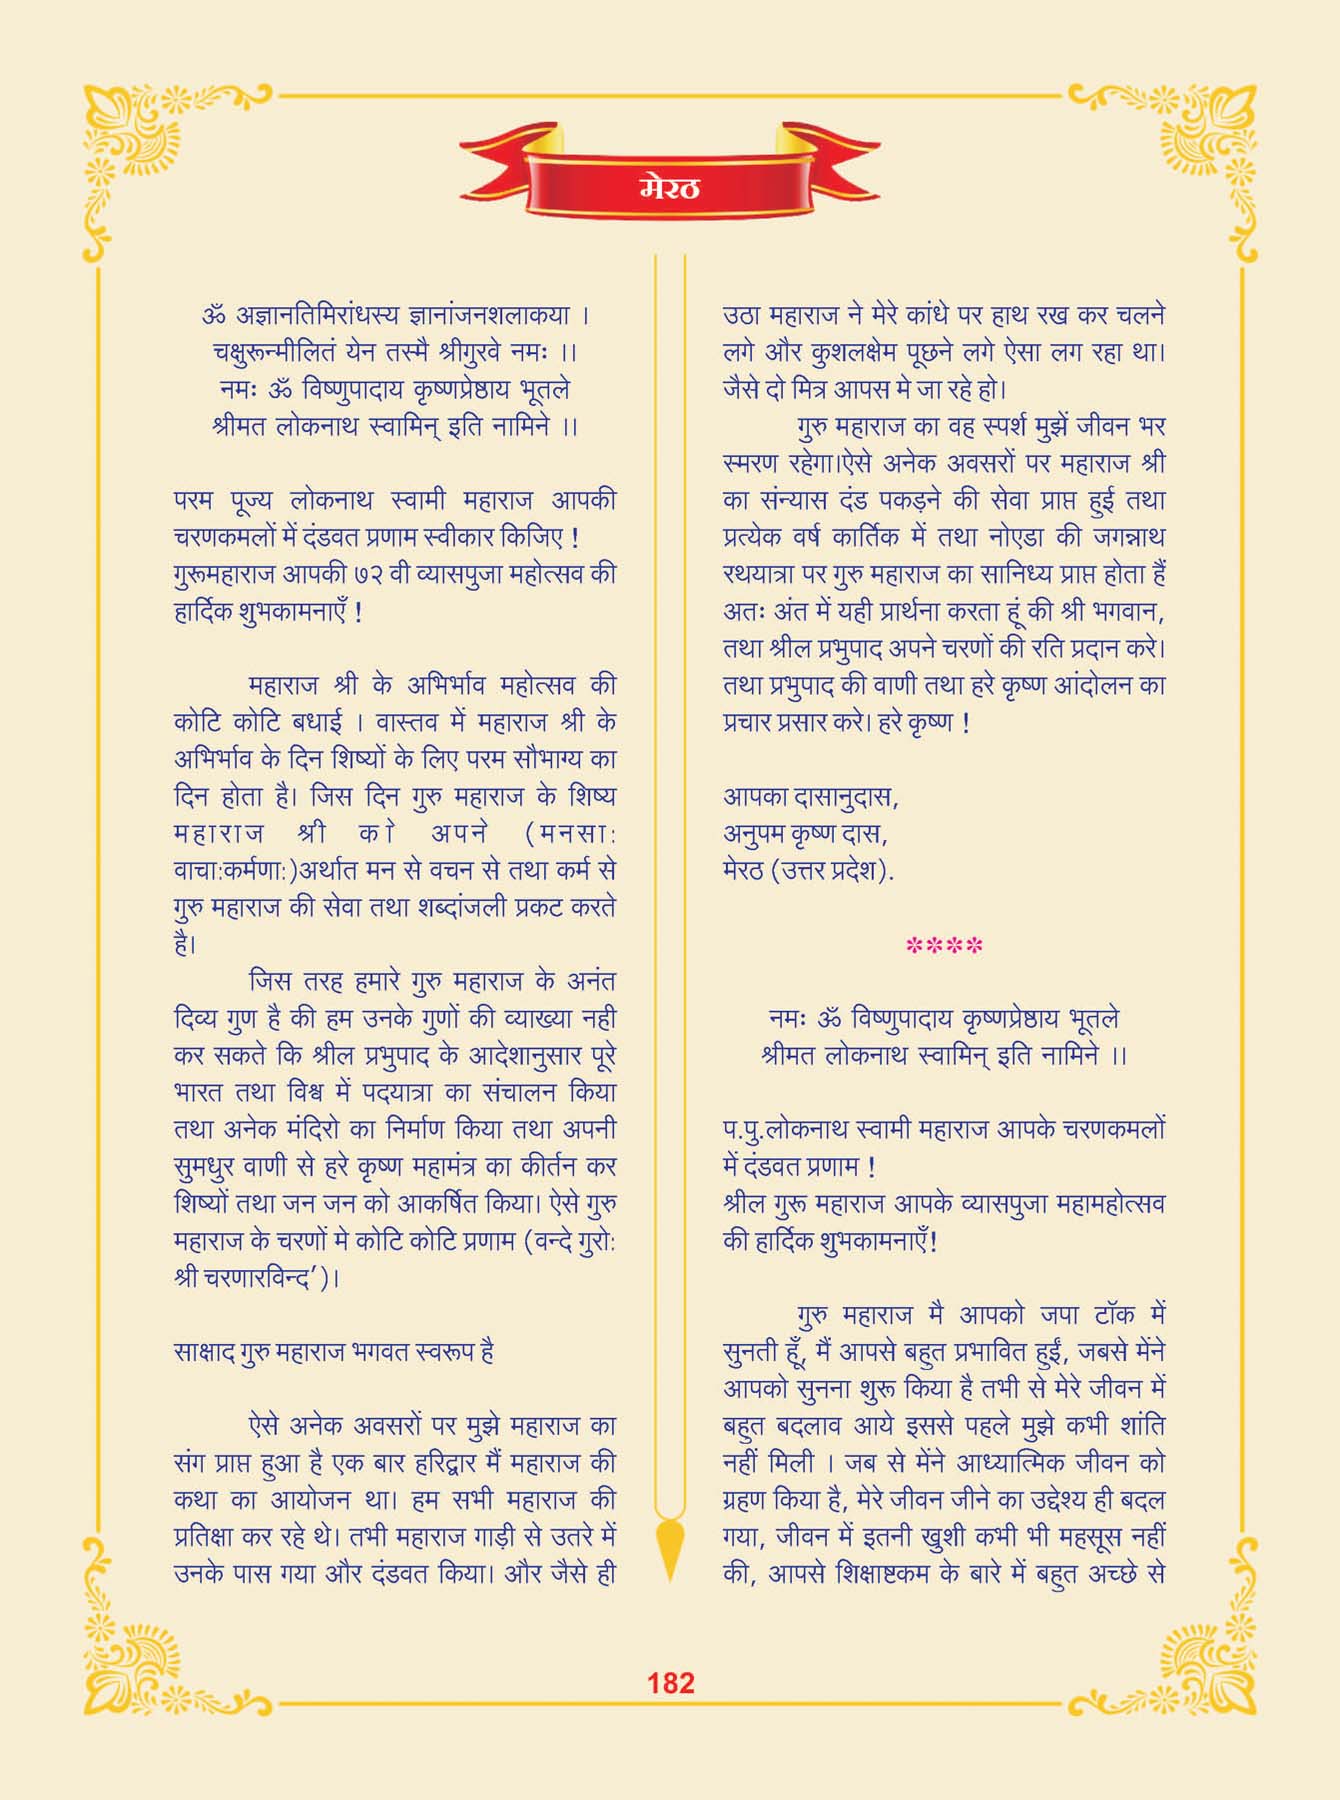 मेरठ
ॐ अज्ञानतिमिरांधस्य ज्ञानांजनशलाकया ।
चक्षुरून्मीलितं येन तस्मै श्रीगुरवे नमः ।।
नमः ॐ विष्णुपादाय कृष्णप्रेष्ठाय भूतले
श्रीमत लोकनाथ स्वामिन् इति नामिने ।।
परम पूज्य लोकनाथ स्वामी महाराज आपकी
चरणकमलों में दंडवत प्रणाम स्वीकार किजिए !
गुरूमहाराज आपकी ७२ वी व्यासपुजा महोत्सव की
हार्दिक शुभकामनाएँ !
महाराज श्री के अभिर्भाव महोत्सव की
कोटि कोटि बधाई । वास्तव में महाराज श्री के
अभिर्भाव के दिन शिष्यों के लिए परम सौभाग्य का
दिन होता है। जिस दिन गुरु महाराज के शिष्य
महाराज श्री को अपने (मनसा:
वाचा:कर्मणा:)अर्थात मन से वचन से तथा कर्म से
गुरु महाराज की सेवा तथा शब्दांजली प्रकट करते
है।
जिस तरह हमारे गुरु महाराज के अनंत
दिव्य गुण है की हम उनके गुणों की व्याख्या नही
कर सकते कि श्रील प्रभुपाद के आदेशानुसार पूरे
भारत तथा विश्व में पदयात्रा का संचालन किया
तथा अनेक मंदिरो का निर्माण किया तथा अपनी
सुमधुर वाणी से हरे कृष्ण महामंत्र का कीर्तन कर
शिष्यों तथा जन जन को आकर्षित किया। ऐसे गुरु
महाराज के चरणों मे कोटि कोटि प्रणाम (वन्दे गुरो:
श्री चरणारविन्द’)।
साक्षाद गुरु महाराज भगवत स्वरूप है
ऐसे अनेक अवसरों पर मुझे महाराज का
संग प्राप्त हुआ है एक बार हरिद्वार मैं महाराज की
कथा का आयोजन था। हम सभी महाराज की
प्रतिक्षा कर रहे थे। तभी महाराज गाड़ी से उतरे में
उनके पास गया और दंडवत किया। और जैसे ही
उठा महाराज ने मेरे कांधे पर हाथ रख कर चलने
लगे और कुशलक्षेम पूछने लगे ऐसा लग रहा था।
जैसे दो मित्र आपस मे जा रहे हो।
गुरु महाराज का वह स्पर्श मुझें जीवन भर
स्मरण रहेगा।ऐसे अनेक अवसरों पर महाराज श्री
का संन्यास दंड पकड़ने की सेवा प्राप्त हुई तथा
प्रत्येक वर्ष कार्तिक में तथा नोएडा की जगन्नाथ
रथयात्रा पर गुरु महाराज का सानिध्य प्राप्त होता हैं
अतः अंत में यही प्रार्थना करता हूं की श्री भगवान,
तथा श्रील प्रभुपाद अपने चरणों की रति प्रदान करे।
तथा प्रभुपाद की वाणी तथा हरे कृष्ण आंदोलन का
प्रचार प्रसार करे। हरे कृष्ण !
आपका दासानुदास,
अनुपम कृष्ण दास,
मेरठ (उत्तर प्रदेश).
****
नमः ॐ विष्णुपादाय कृष्णप्रेष्ठाय भूतले
श्रीमत लोकनाथ स्वामिन् इति नामिने ।।
प.पु.लोकनाथ स्वामी महाराज आपके चरणकमलों
में दंडवत प्रणाम !
श्रील गुरू महाराज आपके व्यासपुजा महामहोत्सव
की हार्दिक शुभकामनाएँ!
गुरु महाराज मै आपको जपा टॉक में
सुनती हूँ, मैं आपसे बहुत प्रभावित हुईं, जबसे मेंने
आपको सुनना शुरू किया है तभी से मेरे जीवन में
बहुत बदलाव आये इससे पहले मुझे कभी शांति
नहीं मिली । जब से मेंने आध्यात्मिक जीवन को
ग्रहण किया है, मेरे जीवन जीने का उद्देश्य ही बदल
गया, जीवन में इतनी खुशी कभी भी महसूस नहीं
की, आपसे शिक्षाष्टकम के बारे में बहुत अच्छे से
182